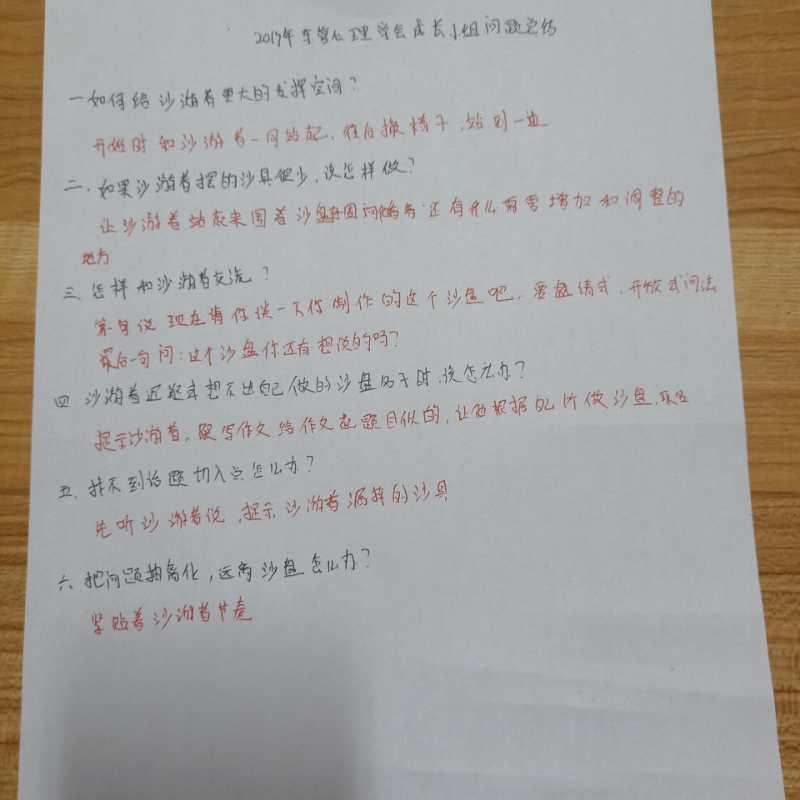 2017年东营心理学会成长小组问题总结
一如何给沙游者更大的发挥空间?
开始时和沙游者一同站起,往后搬椅子,站到一边
二.如果沙游者摆的沙具很少.该怎样做?
让沙游者站起来围着沙盘 还有什么需要增加和调整的
地方
三.怎样和沙游者交流?
第一句说 现在请你谈一下你制作的这个沙盘吧, 开放式问法
最后一句问:这个沙盘你还有想说的吗?
四 沙游者迟疑或想不出自己做的沙盘名字时.该怎么办?
提示沙游者,跟写作文给作文起题目似的,让他根据自己所做沙盘,取名
五.找不到话题切入点怎么办?
先听沙游者说,提示沙游者漏掉的沙具
六.把问题抽离化,远离沙盘怎么办?
紧贴着沙游者节奏